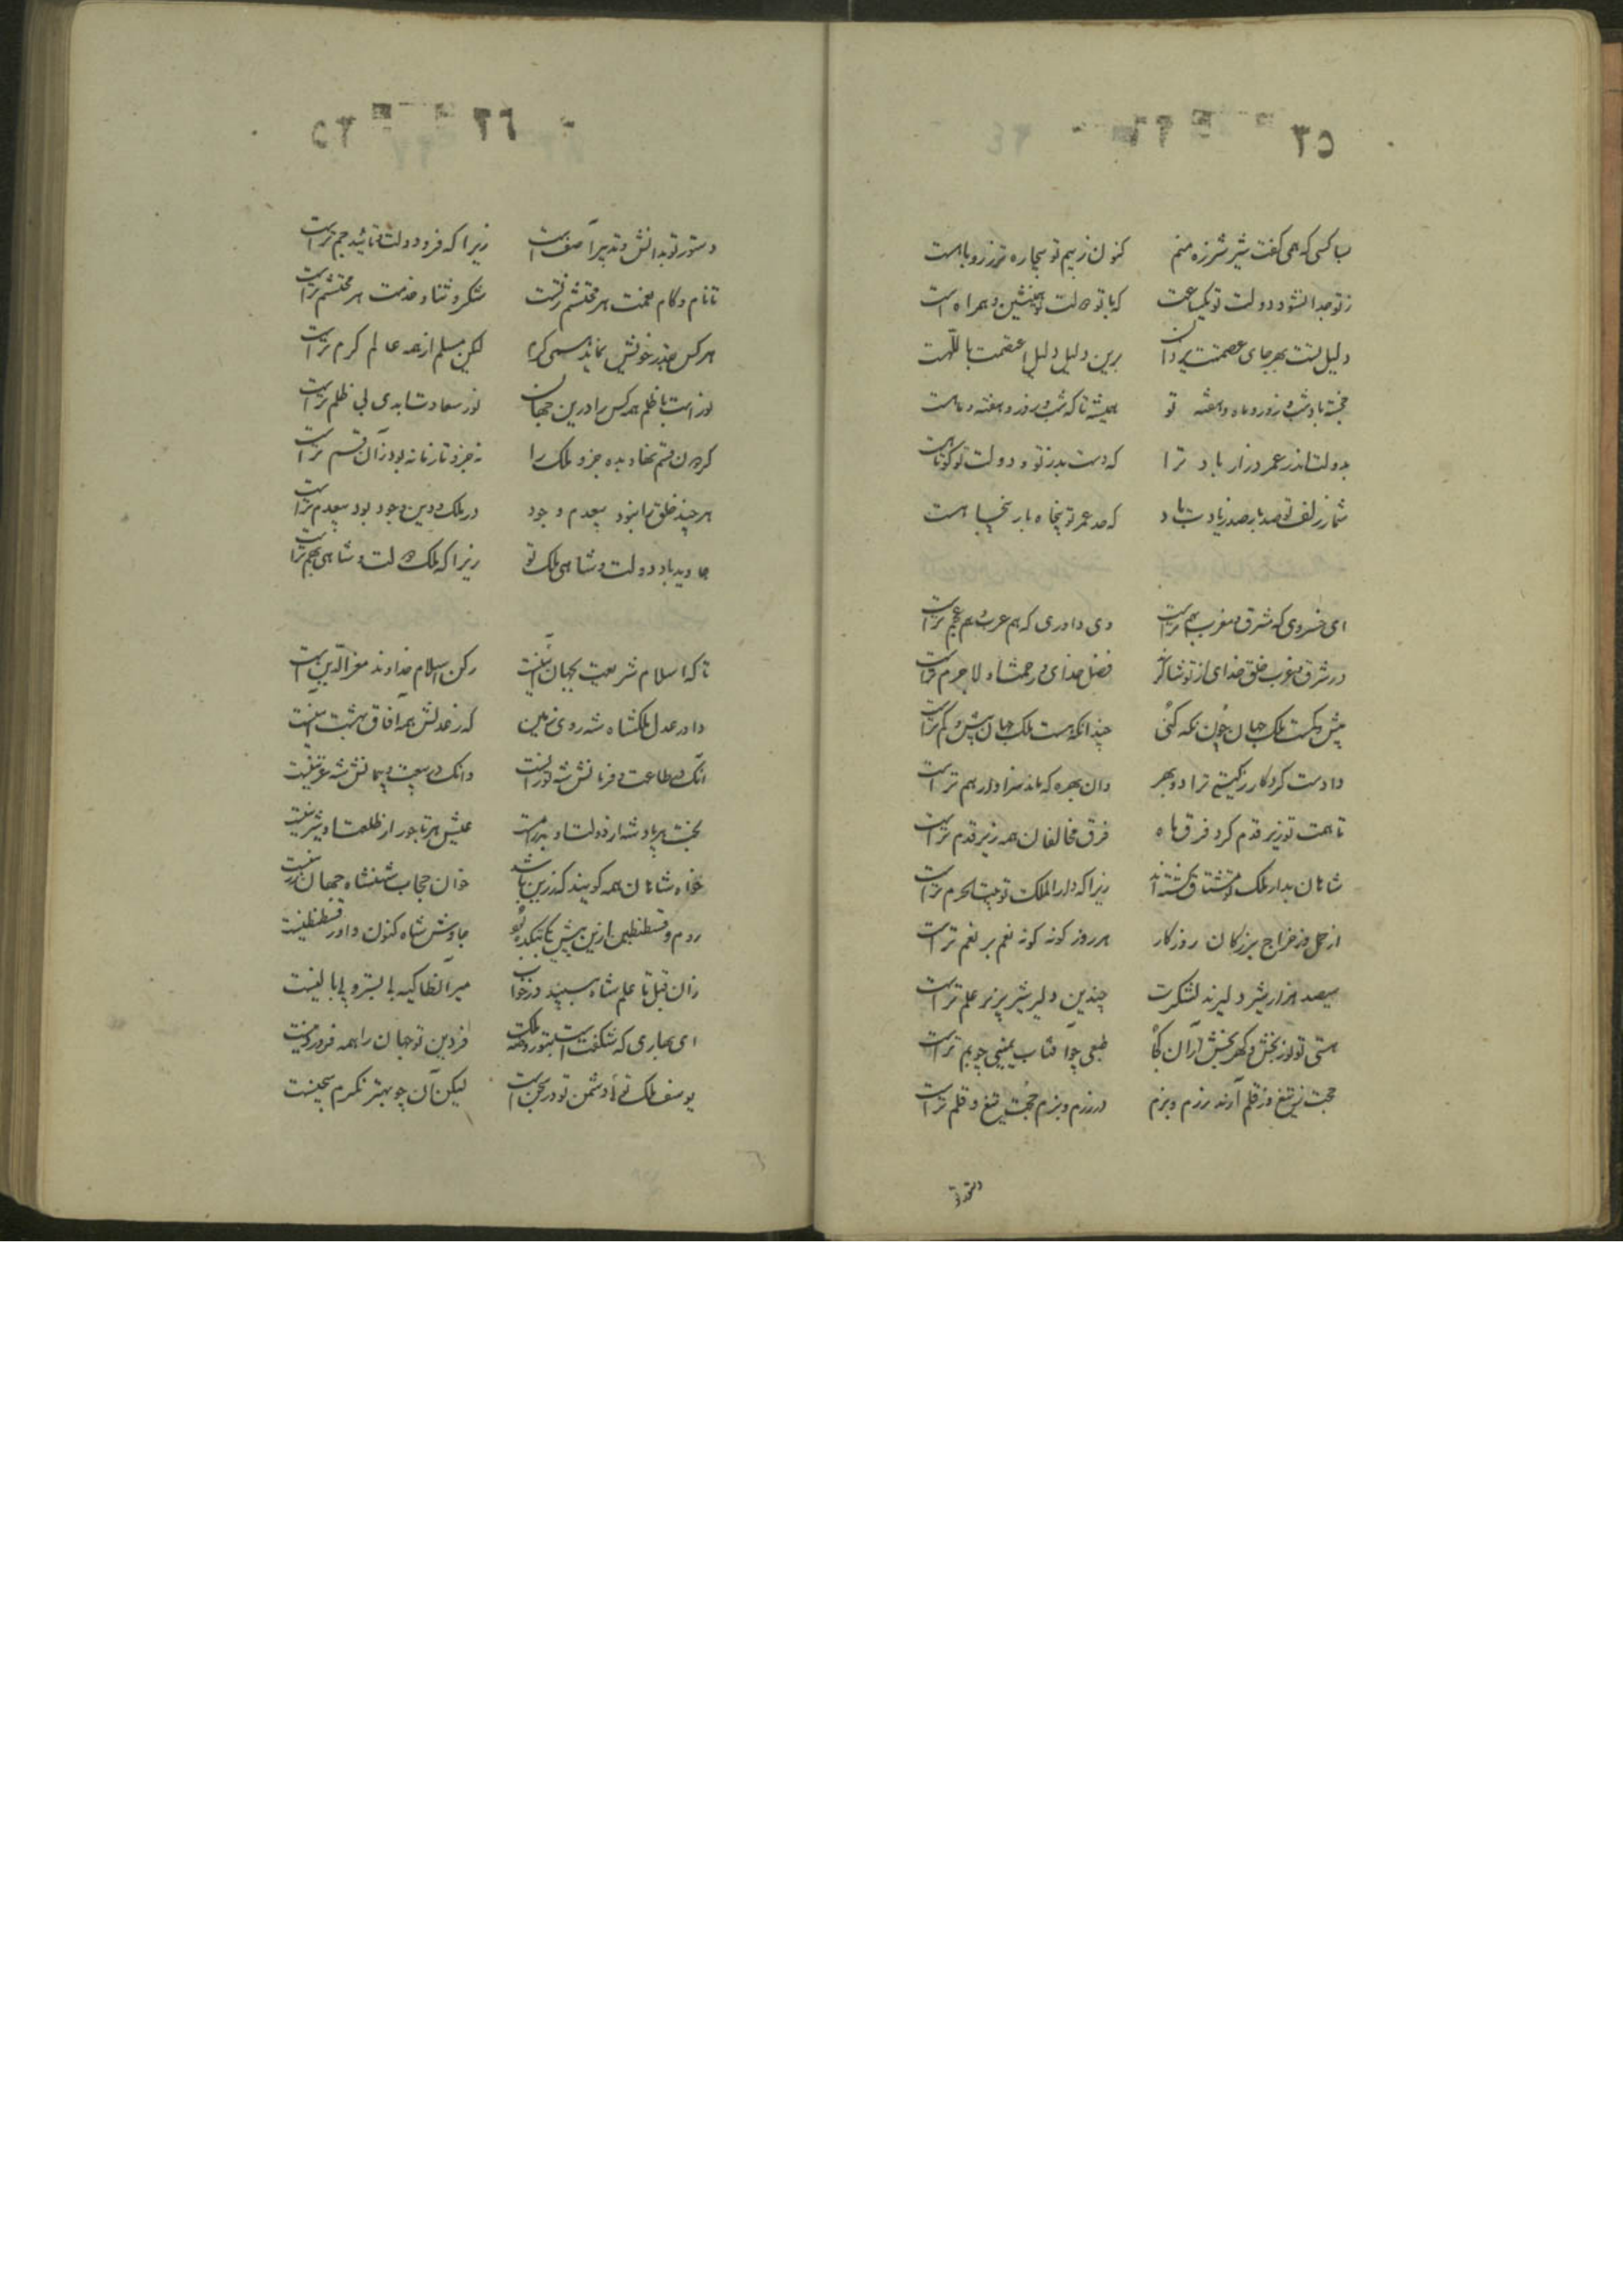 ۳۵
بسا کسی که همی گفت شیر شرزه منم کنون ز بیم تو بیچاره تر ز روباهست
ز تو جدا نشود دولت تو یک ساعت که با تو دولت تو همنشین و همراه است
دلیل تست بهر جای عصمت یزدان برین دلیل دلیل اعصمت باللهست
خجسته باد شب و روز و ماه و هفته تو همیشه تا که شب و روز و هفته و ماهست
بدولت اندر عمر دراز باد ترا که دست بد ز تو و دولت تو کوتاهست
شمار زلف تو صد بار صد زیادت باد که صد عمر تو پنجاه بار پنجاهست
ای خسروی که مشرق و مغرب بهم تراست وی داوری که هم عرب و هم عجم تراست
در شرق و غرب خلق خدای از تو شاکرند فضل خدای و رحمت او لاجرم تراست
بیش و کمست ملک جهان چون نگه کنی چندانکه هست ملک جهان بیش و کم تراست
دادست کردگار ز گیتی ترا دو بهر وان بهره که ماند سزاوار هم تراست
تا همت تو زیر قدم کرد فرق ماه فرق مخالفان همه زیر قدم تراست
شاهان بدار ملک تو مشتاق گشته‌اند زیرا که دار الملک تو بیت الحرم تراست
از حمل وز خراج بزرگان روزگار هر روز گونه گونه نعم بر نعم تراست
سیصد هزار شیر دلیرند لشکرت چندین دلیر شیر بزیر علم تراست
هستی تو نور بخش و گهر بخش از آن کجا طبعی چو آفتاب یمینی چو یم تراست
حجت ز تیغ وز قلم آرند رزم و بزم در رزم و بزم حجت تیغ و قلم تراست
دستور تو
۳۶
دستور تو بدانش و تدبیر آصف است زیرا که فر و دولت و تائید جم تراست
تا نام و کام و نعمت هر محتشم ز تست شکر و ثنا و خدمت هر محتشم تراست
هر کس بقدر خویش نماید همی کرم لیکن مسلم از همه عالم کرم تراست
نور است با ظلم همه کس را درین جهان نور سعادت ابدی بی ظلم تراست
گردون قسم نهاد بده جزو ملک را نه جزو تا زمانه بود زان قسم تراست
هر چند خلق را نبود بیعدم وجود در ملک و دین وجود بود بیعدم تراست
جاوید باد دولت و شاهی و ملک تو زیرا که ملک و دولت و شاهی بهم تراست
تا که اسلام و شریعت بجهان آئینست رکن اسلام خداوند معزالدین است
داور عدل ملکشاه شه روی زمین که ز عدلش همه آفاق بهشت آئینست
آنکه در طاعت و فرمانش شه تورانست وانکه در بیعت و پیمانش شه غزنینست
بخت هر پادشه از دولت او به روزست عیش هر تاجور از طلعت او شیرینست
روم و قسطنطین ازین پیش بکام تکبد چاوش شاه کنون داور قسطنطینست
زان قبل تا علم شاه ببیند در خواب میر انطاکیه بی بستر و بی بالینست
ای بهاری که شکفتست بتو روضه ملک فر دین تو جهان را همه فروردینست
یوسف ملک توئی دشمن تو در سجن است لیکن آن چو بهتر نگرم سجینست